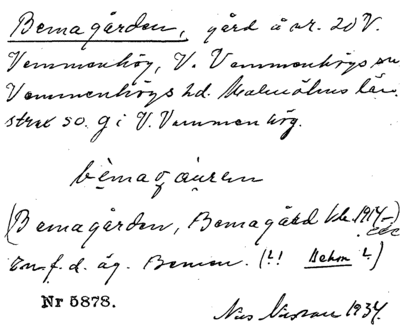 Bemagården, gård å nr. 20 V.
Vemmenhög, V. Vemmenhögs sn
Vemmenhögs hd. Malmöhus län.
strax so. g i V. Vemmenhög.
bemagåuren
(Bemagården, Bemagård 1914-)
En f. d. äg. Bemen. (L! Behm L)
Nr 5878.
1934.